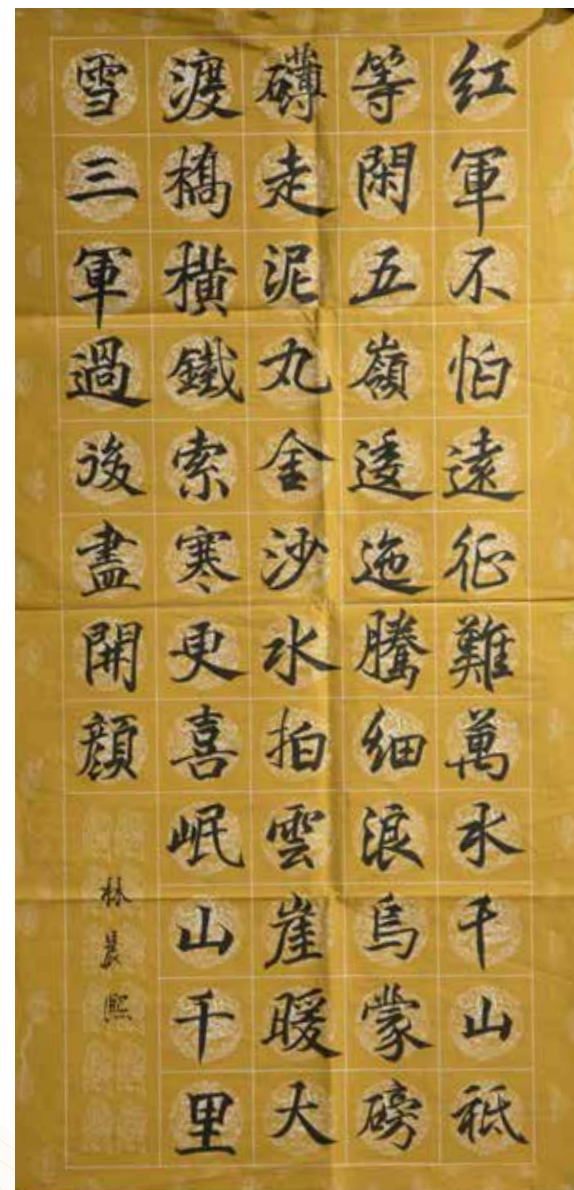 紅軍不怕遠征難萬水千山祗
等閑五嶺逶迤騰細浪烏蒙磅
礴走泥丸金沙水拍雲崖暖大
渡橋橫鐵索寒更喜岷山千里
雪三軍過後盡開顏
林晨熙